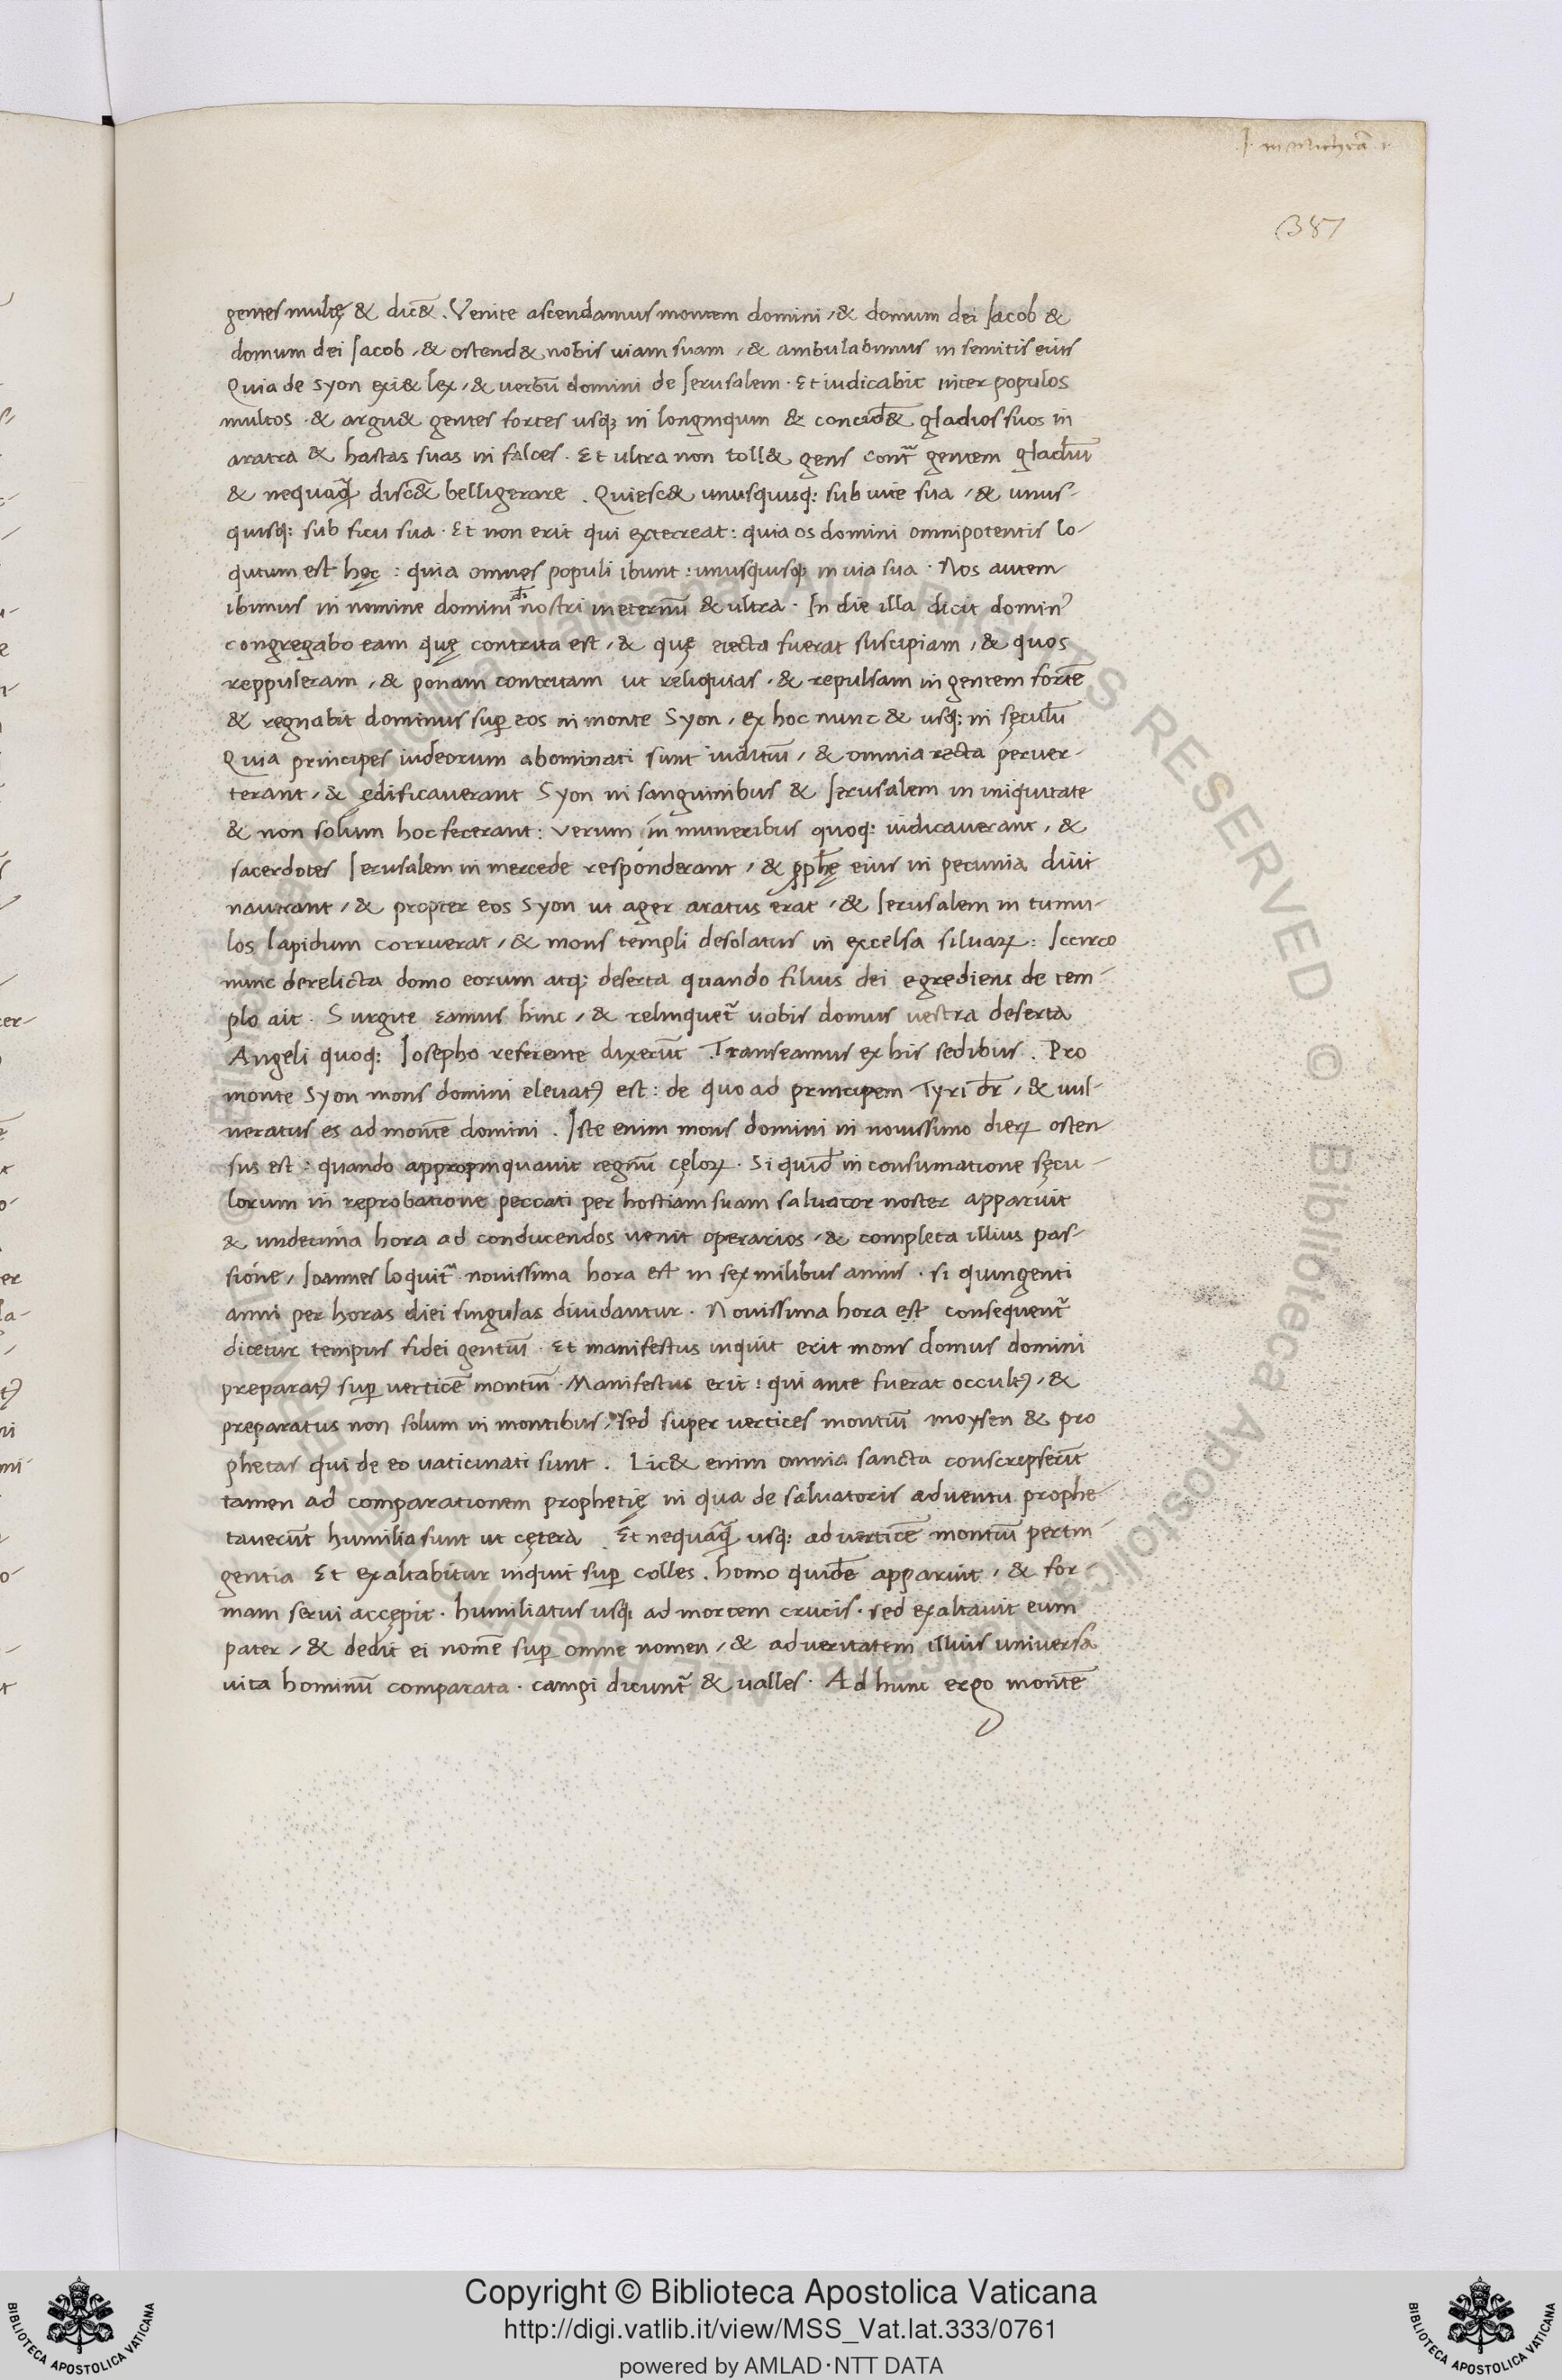 I. in Micheā .1.
387
gentes multę & dicē&. Venite ascendamus montem domini, & domum dei Iacob &
domum dei Iacob, & ostend& nobis uiam suam, & ambulabimus in semitis eius
Quia de Syon exi& lex, & uerbū domini de Ierusalem. Et iudicabit inter populos
multos. & argu& gentes fortes usq; in longinqum & concidē& gladios suos in
aratra & hastas suas in falces. Et ultra non toll& gens contᷓ gentem gladiū
& nequaq̄ discē& belligerare. Quiesc& unusquisq: sub uite sua, & unus-
quisq: sub ficu sua. Et non erit qui exterreat: quia os domini omnipotentis lo-
qutum est hęc: quia omnes populi ibunt: unusquisq; in uia sua. Nos autem
ibimus in nomine domini d̄i nostri in eternū & ultra. In die illa dicit domin᾽
congregabo eam quę contrita est, & quę eiecta fuerat suscipiam, & quos
reppuleram, & ponam contritam ut reliquias, & repulsam in gentem fortē
& regnabit dominus suꝑ eos in monte Syon, ex hoc nunc & usq: in sęculū
Quia principes iudeorum abominati sunt iuditiū, & omnia recta peruer-
terant, & ędificauerant Syon in sanguinibus & Ierusalem in iniquitate
& non solum hoc fecerant: verum in muneribus quoq: iudicauerant, &
sacerdotes Ierusalem in mercede responderant, & ꝓph̄ę eius in pecunia diui
nauerant, & propter eos Syon ut ager aratus erat, & Ierusalem in tumu-
los lapidum corruerat, & mons templi desolatus in excelsa siluaꝝ: Iccirco
nunc derelicta domo eorum atq; deserta quando filius dei egrediens de tem-
plo ait. Surgite eamus hinc, & relinquetᷓ uobis domus uestra deserta
Angeli quoq: Iosepho referente dixerūt. Transeamus ex his sedibus. Pro
monte Syon mons domini eleuatꝰ est: de quo ad principem Tyri dr̄, & uul-
neratus es ad montē domini. Iste enim mons domini in nouissimo dierꝝ osten
sus est: quando appropinquauit regnū cęloꝝ. Si quid̄ in consumatione sęcu-
lorum in reprobatione peccati per hostiam suam saluator noster apparuit
& undecima hora ad conducendos uenit operarios, & completa illius pas-
sione, Ioannes loquitᷓ nouissima hora est in sex milibus annis. si quingenti
anni per horas diei singulas diuidantur. Nouissima hora est consequentᷓ
dicetur tempus fidei gentiū. Et manifestus inquit erit mons domus domini
preparatꝰ suꝑ verticē montiū. Manifestus erit: qui ante fuerat occultꝰ, &
preparatus non solum in montibus, sed super vertices montiū moysen & pro
phetas qui de eo uaticinati sunt. Lic& enim omnia sancta conscripserūt
tamen ad comparationem prophetię in qua de saluatoris aduentu prophe-
tauerūt humilia sunt ut cętera. Et nequaq̄ usq: ad verticē montiū pertin-
gentia Et exaltabitur inquit suꝑ colles. homo quidē apparuit, & for-
mam serui accępit. humiliatus usq; ad mortem crucis. sed exaltauit eum
pater, & dedit ei nomē suꝑ omne nomen, & ad veritatem illius universa
uita hominū comparata. campi dicuntᷓ & ualles. Ad hunc ergo montē
Copyright © Biblioteca Apostolica Vaticana
http://digi.vatlib.it/view/MSS_Vat.lat.333/0761
powered by AMLAD·NTT DATA
BIBLIOTECA APOSTOLICA VATICANA
BIBLIOTECA APOSTOLICA VATICANA